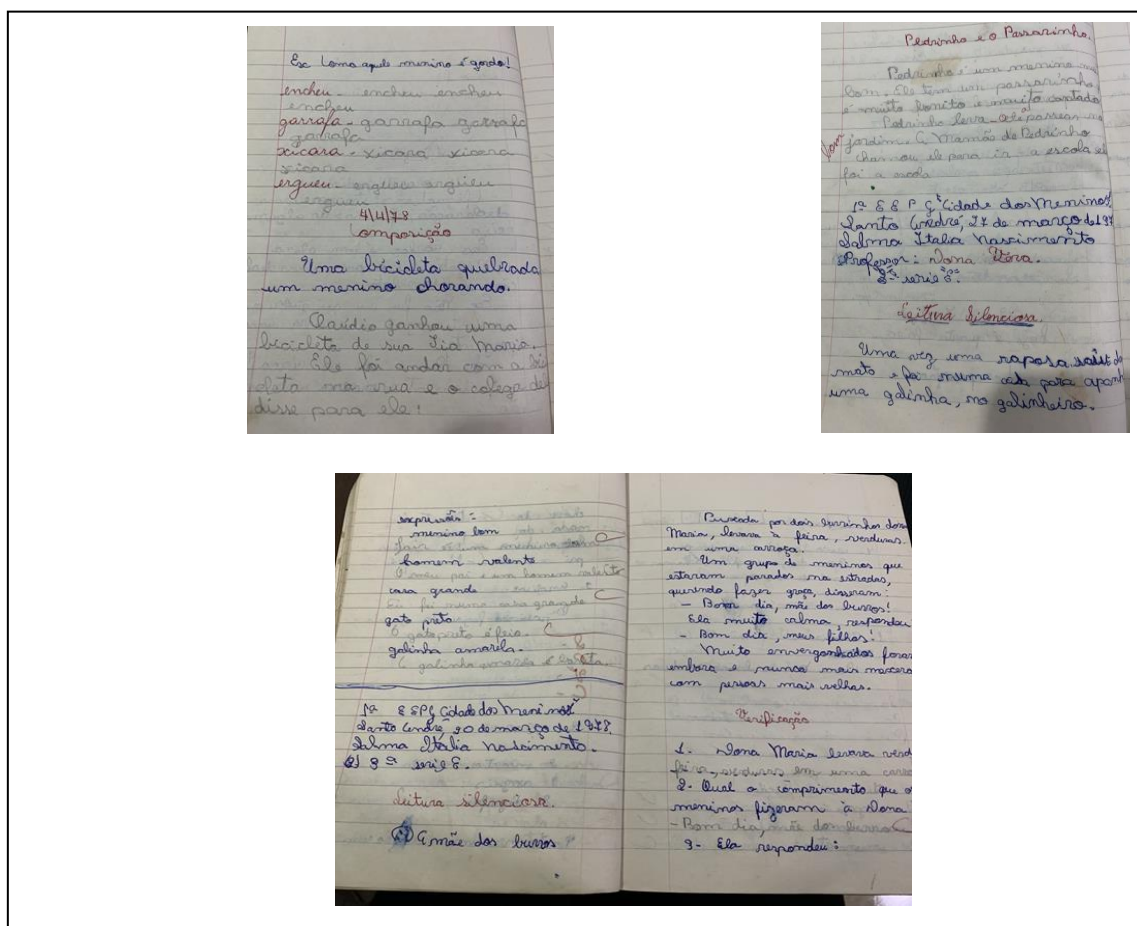 Ex Como aquele menino é gordo!
encheu - encheu encheu
encheu
garrafa - garrafa garrafa
garrafa
xicara - xicara xicara
xicara
ergueu - ergueu ergueu
ergueu
4/4/78
Composição
Uma bicicleta quebrada
um menino chorando.
Claudio ganhou uma
bicicleta de sua Tia Maria.
Ele foi andar com a bi
cleta na rua e o colega de
disse para ele:
Pedrinho e o Passarinho.
Pedrinho é um menino
bom. Ele tem um passarinho
é muito bonito e muito cantado
Pedrinho leva ele passear no
jardim. A Mamãe de Pedrinho
chamou ele para ir a escola
foi a escola
1ª E E P G "Cidade dos Meninos"
Santo André, 27 de março de 197
Dalma Italia Nascimento
Professor: Dona Vera.
serie
Leitura Silenciosa.
Uma vez uma raposa saiu do
mato e foi numa casa para apanh
uma galinha, no galinheiro.
expressão:
menino bom
homem valente
O meu pai é um homem valente
casa grande
Eu fui numa casa grande
gato preto
O gato preto é feio.
galinha amarela.
A galinha amarela é
1ª E EPG Cidade dos Meninos"
Santo André 20 de março de 1978.
Dalma Itália Nascimento.
serie
Leitura silenciosa.
A mãe dos burros
Puxada por dois burrinhos dona
Maria, levava à feira, verduras
em uma carroça.
Um grupo de meninos que
estavam parados na estradas,
querendo fazer graça, disseram:
- Bom dia, mãe dos burros!
Ela muito calma, respondeu
- Bom dia, meus filhos!
Muito envergonhados foram
embora e nunca mais mexera
com pessoas mais velhas.
Verificação
1. Dona Maria levava verd
feira, verduras em uma carro
2- Qual o comprimento que o
meninos fizeram à Dona
- Bom dia, mãe dos burros
3- Ela respondeu: